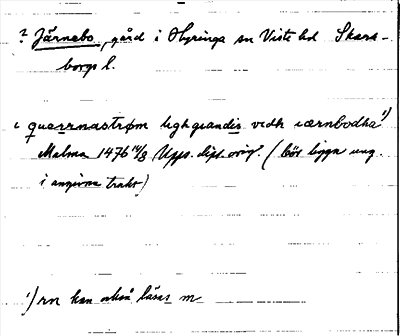 ? Järnebo, gård i Hyringa sn Viste hd Skara-
borgs l.
i quærnastrøm lighiandis vedh iærnbodha 1)
Malma 1476 14/8 Upps. dipl. orig. (bör ligga ung.
i angivna trakt)
1) rn kan också läsas m